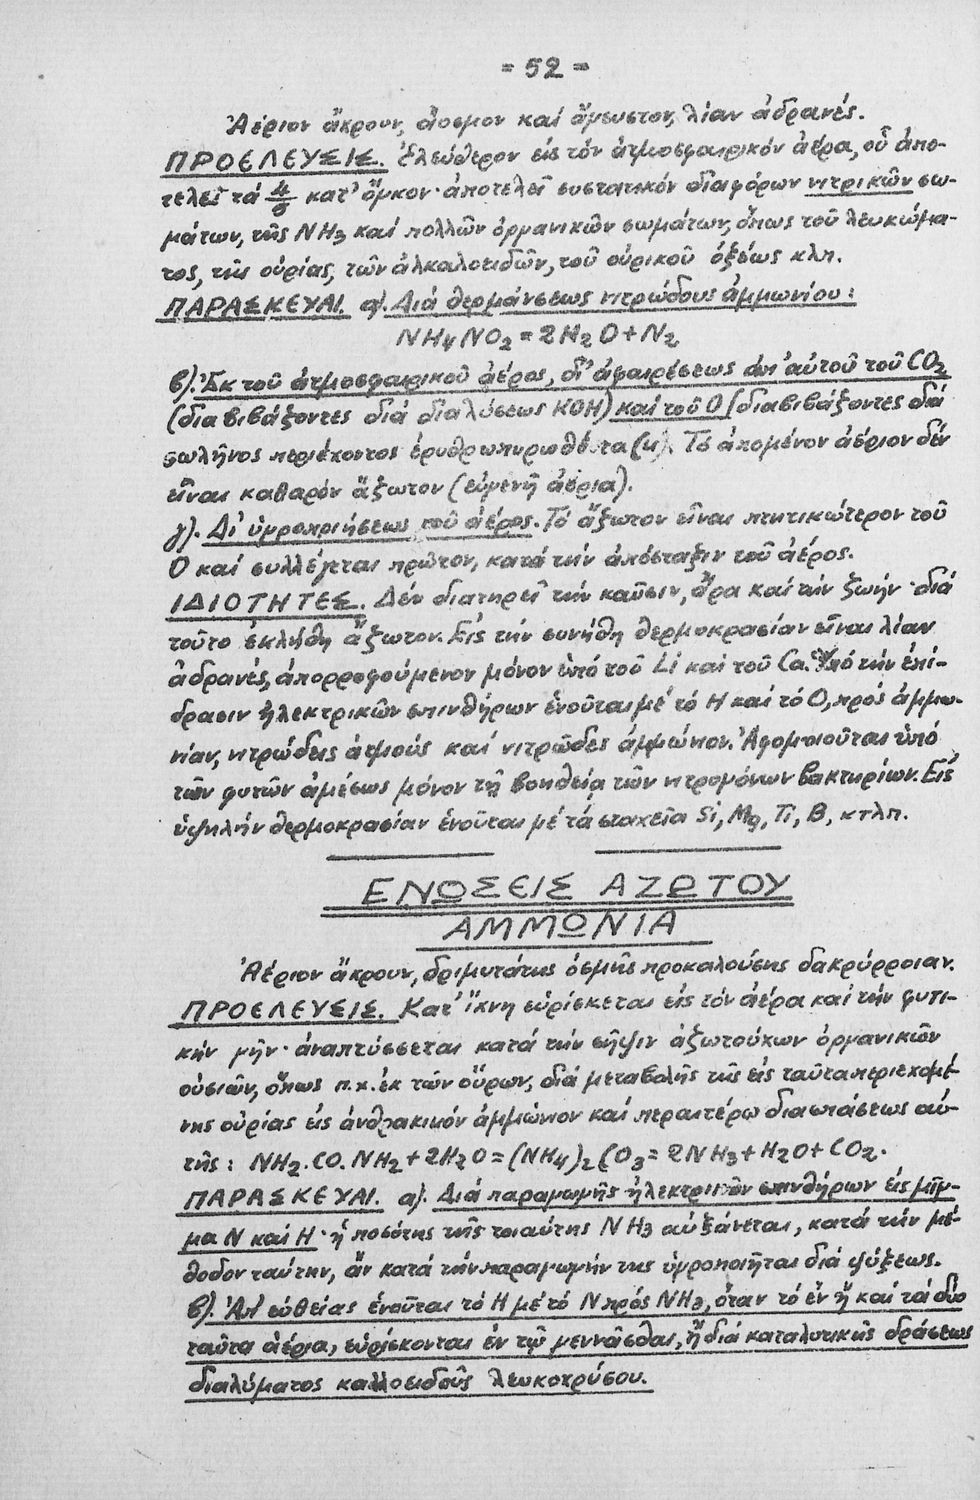 = 52 =
Ἀέριον ἄχρουν, ἄοσμον καί ἄγευστον, λίαν ἀδρανές.
ΠΡΟΕΛΕΥΣΙΣ. Ἐλεύθερον εἰς τόν ἀτμοσφαιρικόν ἀέρα, οὗ ἀπο-
τελεῖ τά 4/5 κατ' ὄγκον· ἀποτελεῖ συστατικόν διαφόρων νιτρικῶν σω-
μάτων, τῆς NH3 καί πολλῶν ὀργανικῶν σωμάτων, ὅπως τοῦ λευκώμα-
τος, τῆς οὐρίας, τῶν ἀλκαλοειδῶν, τοῦ οὐρικοῦ ὀξέως κλπ.
ΠΑΡΑΣΚΕΥΑΙ. α). Διά θερμάνσεως νιτρώδους ἀμμωνίου:
NH4NO2 = 2H2O + N2
β). Ἐκ τοῦ ἀτμοσφαιρικοῦ ἀέρος, δι' ἀφαιρέσεως ἀπ' αὐτοῦ τοῦ CO2
(διαβιβάζοντες διά διαλύσεως KOH) καί τοῦ O (διαβιβάζοντες διά
σωλῆνος περιέχοντος ἐρυθρωπυρωθέντα Cu). Τό ἀπομένον ἀέριον δέν
εἶναι καθαρόν ἄζωτον (εὐγενῆ ἀέρια).
γ). Δι' ὑγροποιήσεως τοῦ ἀέρος. Τό ἄζωτον εἶναι πτητικώτερον τοῦ
O καί συλλέγεται πρῶτον, κατά τήν ἀπόσταξιν τοῦ ἀέρος.
ΙΔΙΟΤΗΤΕΣ. Δέν διατηρεῖ τήν καῦσιν, ἄρα καί τήν ζωήν· διά
τοῦτο ἐκλήθη ἄζωτον. Εἰς τήν συνήθη θερμοκρασίαν εἶναι λίαν
ἀδρανές, ἀπορροφούμενον μόνον ὑπό τοῦ Li καί τοῦ Ca. Ὑπό τήν ἐπί-
δρασιν ἠλεκτρικῶν σπινθήρων ἑνοῦται μέ τό H καί τό O, πρός ἀμμω-
νίαν, νιτρώδεις ἀτμούς καί νιτρῶδες ἀμμώνιον. Ἀφομοιοῦται ὑπό
τῶν φυτῶν ἀμέσως μόνον τῇ βοηθείᾳ τῶν νιτρογόνων βακτηρίων. Εἰς
ὑψηλήν θερμοκρασίαν ἑνοῦται μέ τά στοιχεῖα Si, Mg, Ti, B, κτλπ.
ΕΝΩΣΕΙΣ ΑΖΩΤΟΥ
ΑΜΜΩΝΙΑ
Ἀέριον ἄχρουν, δριμυτάτης ὀσμῆς προκαλούσης δακρύρροιαν.
ΠΡΟΕΛΕΥΣΙΣ. Κατ' ἴχνη εὑρίσκεται εἰς τόν ἀέρα καί τήν φυτι-
κήν γῆν· ἀναπτύσσεται κατά τήν σῆψιν ἀζωτούχων ὀργανικῶν
οὐσιῶν, ὅπως π.χ. ἐκ τῶν οὔρων, διά μεταβολῆς τῆς εἰς ταῦτα περιεχομέ-
νης οὐρίας εἰς ἀνθρακικόν ἀμμώνιον καί περαιτέρω διασπάσεως αὐ-
τῆς: NH2.CO.NH2 + 2H2O = (NH4)2CO3 = 2NH3 + H2O + CO2.
ΠΑΡΑΣΚΕΥΑΙ. α). Διά παραγωγῆς ἠλεκτρικῶν σπινθήρων εἰς μῖγ-
μα N καί H· ἡ ποσότης τῆς τοιαύτης NH3 αὐξάνεται, κατά τήν μέ-
θοδον ταύτην, ἄν κατά τήν παραγωγήν της ὑγροποιῆται διά ψύξεως.
β). Ἀπ' εὐθείας ἑνοῦται τό H μέ τό N πρός NH3, ὅταν τό ἕν ἤ καί τά δύο
ταῦτα ἀέρια, εὑρίσκονται ἐν τῷ γεννᾶσθαι, ἤ διά καταλυτικῆς δράσεως
διαλύματος κολλοειδοῦς λευκοχρύσου.